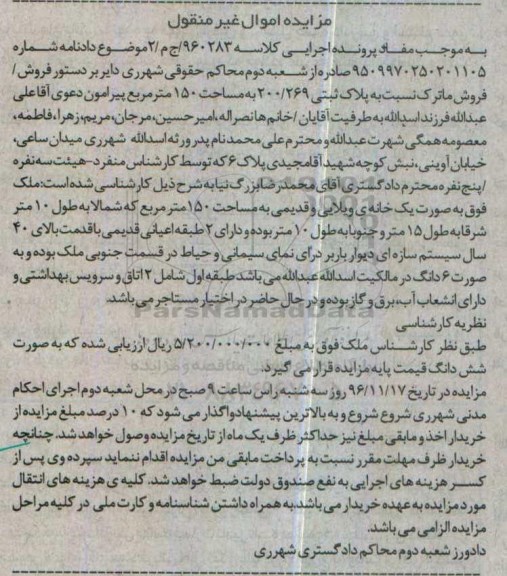 مزایده اموال غیر منقول
به موجب مفاد پرونده اجرایی کلاسه ۹۶۰۲۸۳/ج م/۲ موضوع دادنامه شماره
۹۵۰۹۹۷۰۲۵۰۲۰۱۱۰۵ صادره از شعبه دوم محاکم حقوقی شهرری دایر بر دستور فروش/
فروش ماترک نسبت به پلاک ثبتی ۲۰۰/۲۶۹ به مساحت ۱۵۰ مترمربع پیرامون دعوی آقا علی
عبدالله فرزند اسدالله به طرفیت آقایان/خانم ها نصراله، امیرحسین، مرجان، مریم، زهرا، فاطمه،
معصومه همگی شهرت عبدالله و محترم علی محمد نام پدر ورثه اسدالله شهرری میدان ساعی،
خیابان آوینی، نبش کوچه شهید آقامجیدی پلاک ۶ که توسط کارشناس منفرد-هیئت سه نفره
/پنج نفره محترم دادگستری آقای محمدرضا بزرگ نیا به شرح ذیل کارشناسی شده است: ملک
فوق به صورت یک خانه ی ویلایی و قدیمی به مساحت ۱۵۰ متر مربع که شمالا به طول ۱۰ متر
شرقا به طول ۱۵ متر و جنوبا به طول ۱۰ متر بوده و دارای ۲ طبقه اعیانی قدیمی با قدمت بالای ۴۰
سال سیستم سازه ای دیوار باربر درای نمای سیمانی و حیاط در قسمت جنوبی ملک بوده و به
صورت ۶ دانگ در مالکیت اسدالله عبدالله می باشد طبقه اول شامل ۲ اتاق و سرویس بهداشتی و
دارای انشعاب آب، برق و گاز بوده و در حال حاضر در اختیار مستاجر می باشد.
ParsNamadData
نظریه کارشناسی
طبق نظر کارشناس ملک فوق به مبلغ ۵/۲۰۰/۰۰۰/۰۰۰ ریال ارزیابی شده که به صورت
شش دانگ قیمت پایه مزایده قرار می گیرد.
مزایده در تاریخ ۹۶/۱۱/۱۷ روز سه شنبه راس ساعت ۹ صبح در محل شعبه دوم اجرای احکام
مدنی شهرری شروع شروع و به بالاترین پیشنهاد واگذار می شود که ۱۰ درصد مبلغ مزایده از
خریدار اخذ و مابقی مبلغ نیز حداکثر ظرف یک ماه از تاریخ مزایده وصول خواهد شد. چنانچه
خریدار ظرف مهلت مقرر نسبت به پرداخت مابقی من مزایده اقدام ننماید سپرده وی پس از
کسر هزینه های اجرایی به نفع صندوق دولت ضبط خواهد شد. کلیه ی هزینه های انتقال
مورد مزایده به عهده خریدار می باشد. به همراه داشتن شناسنامه و کارت ملی در کلیه مراحل
مزایده الزامی می باشد.
دادورز شعبه دوم محاکم دادگستری شهرری